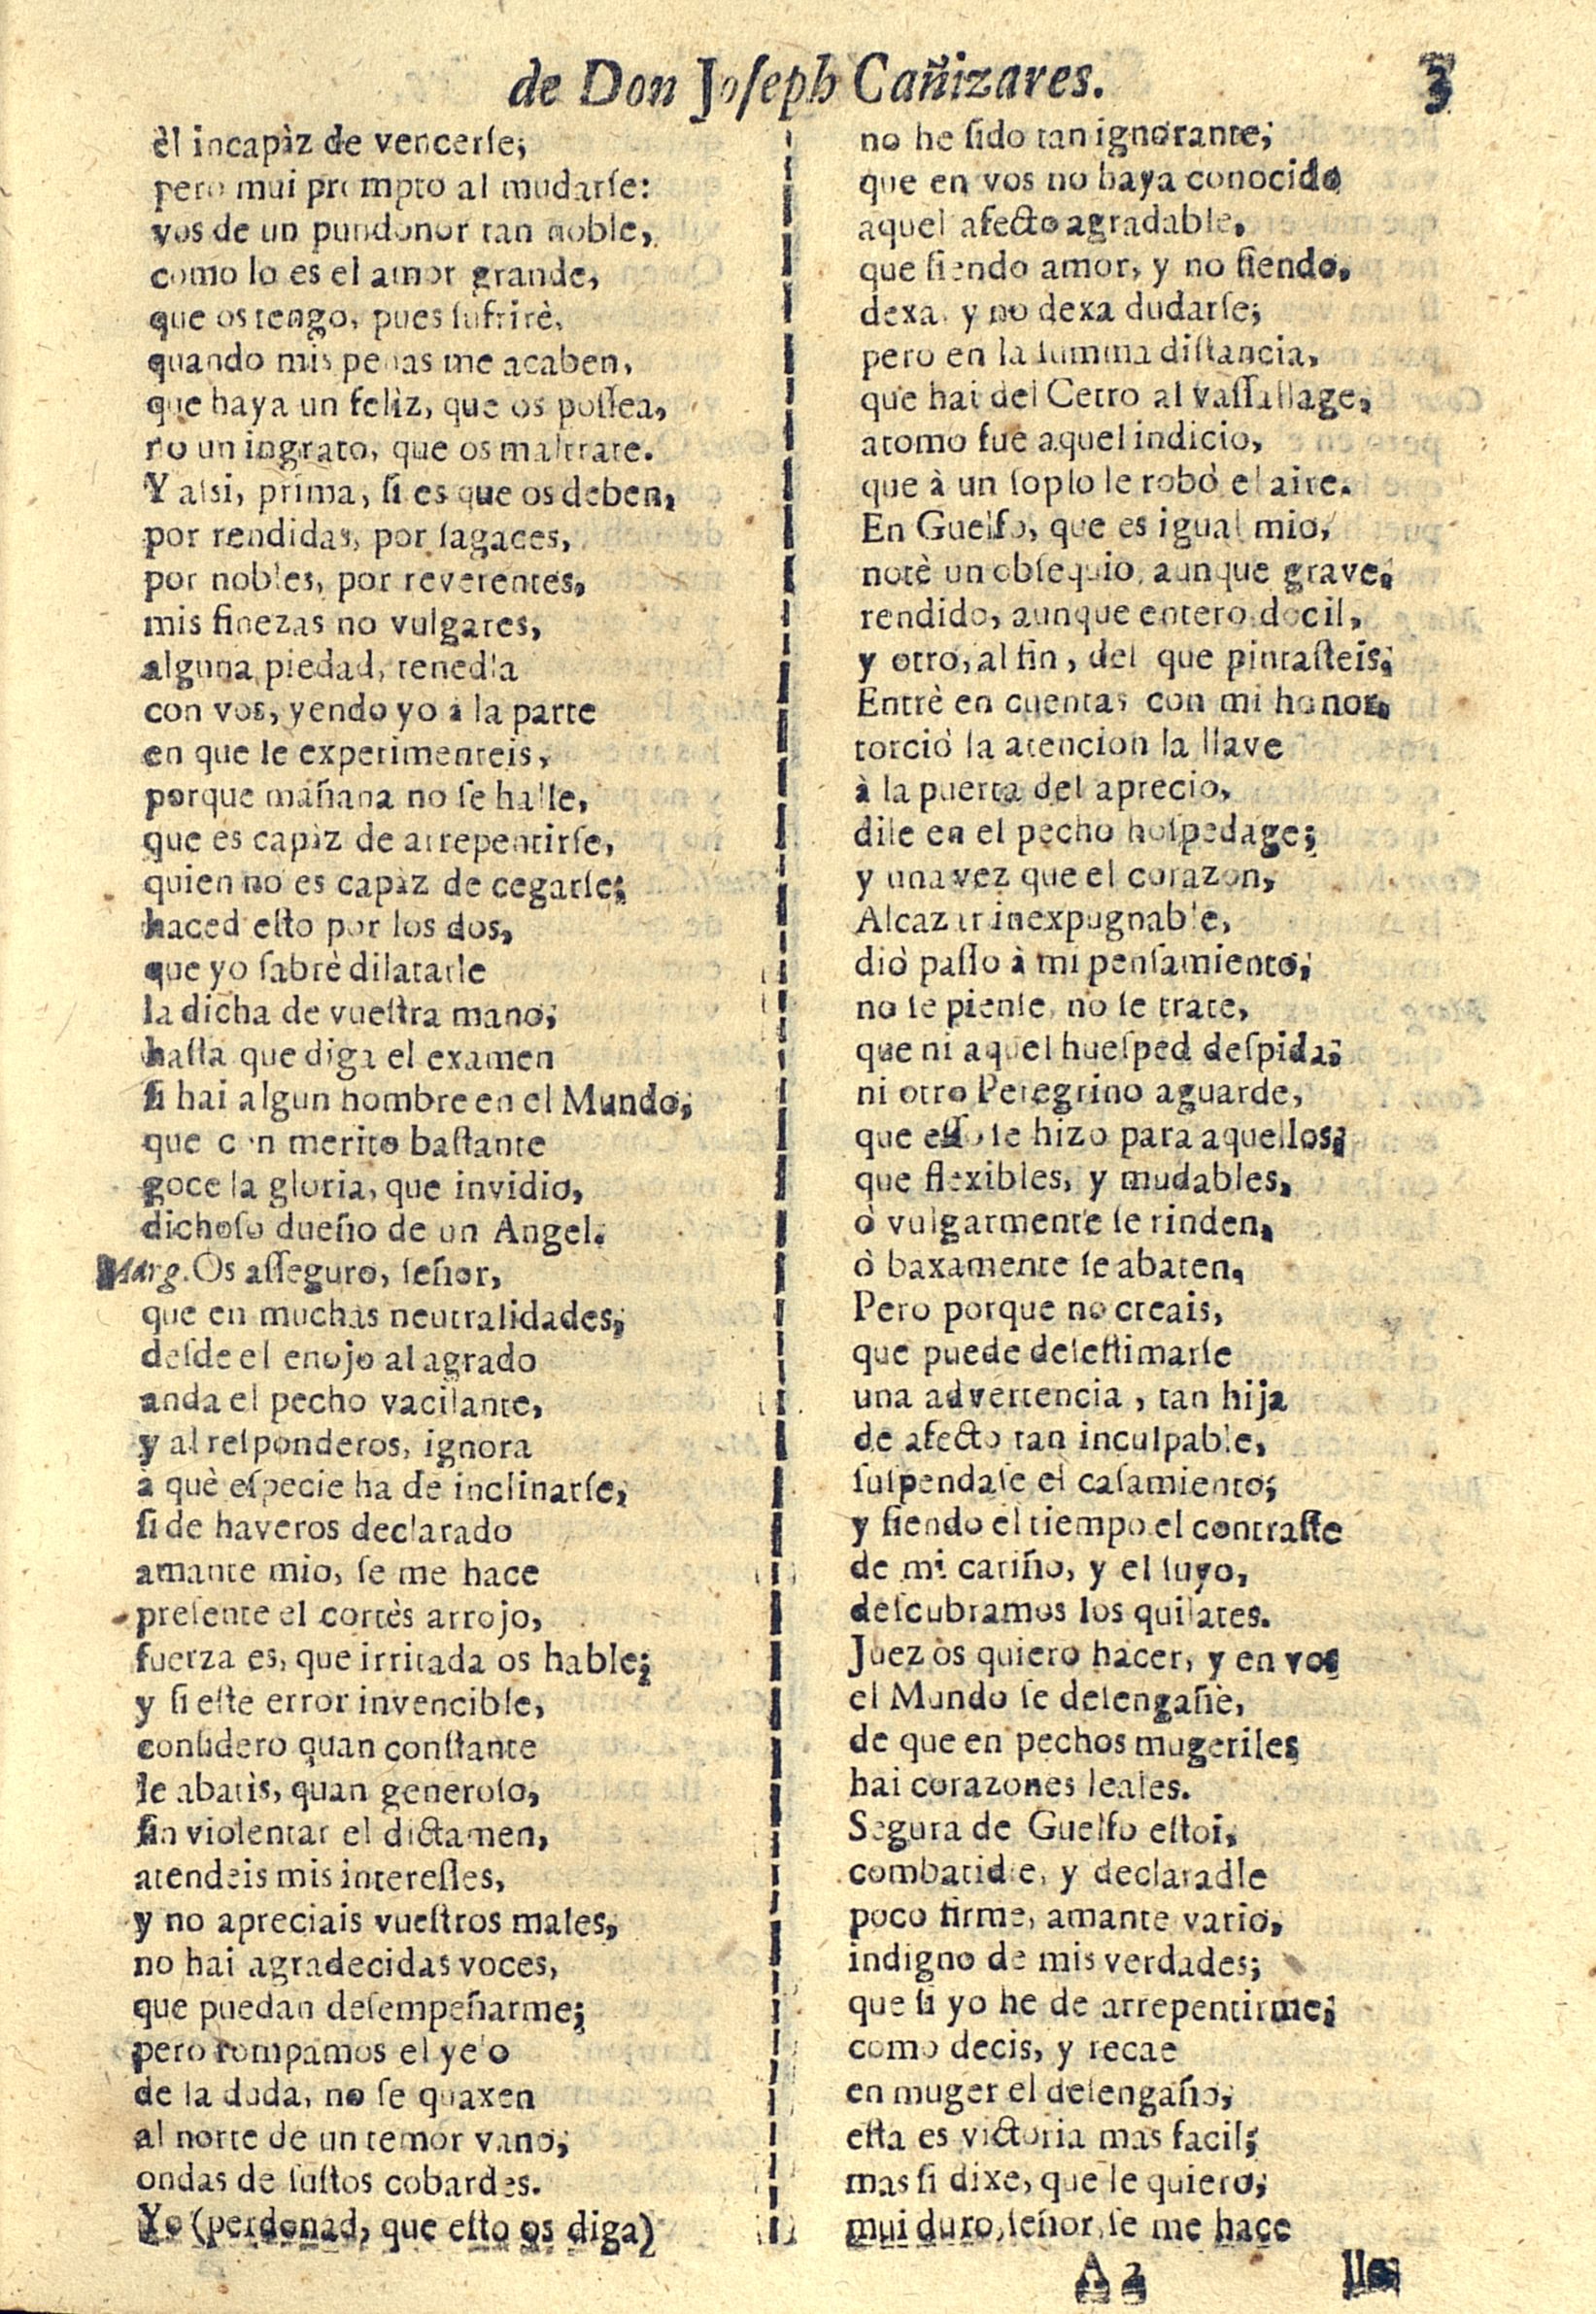 de Don Joseph Cañizares.
3
èl incapàz de vencerse;
pero mui prompto al mudarse:
vos de un pundonor tan noble,
como lo es el amor grande,
que os tengo, pues sufrirè,
quando mis penas me acaben,
que haya un feliz, que os possea,
no un ingrato, que os maltrate.
Y assi, prima, si es que os deben,
por rendidas, por sagaces,
por nobles, por reverentes,
mis finezas no vulgares,
alguna piedad, tenedla
con vos, yendo yo à la parte
en que le experimenteis,
porque mañana no se halle,
que es capàz de arrepentirse,
quien no es capàz de cegarse;
haced esto por los dos,
que yo sabrè dilatarle
la dicha de vuestra mano;
hasta que diga el examen
si hai algun hombre en el Mundo,
que con merito bastante
goce la gloria, que invidio,
dichoso dueño de un Angel.
Marg. Os asseguro, señor,
que en muchas neutralidades,
desde el enojo al agrado
anda el pecho vacilante,
y al responderos, ignora
à què especie ha de inclinarse,
si de haveros declarado
amante mio, se me hace
presente el cortès arrojo,
fuerza es, que irritada os hable;
y si este error invencible,
considero quan constante
le abatis, quan generoso,
sin violentar el dictamen,
atendeis mis interesses,
y no apreciais vuestros males,
no hai agradecidas voces,
que puedan desempeñarme;
pero rompamos el yelo
de la duda, no se quaxen
al norte de un temor vano,
ondas de sustos cobardes.
Yo (perdonad, que esto os diga)
no he sido tan ignorante,
que en vos no haya conocido
aquel afecto agradable,
que siendo amor, y no siendo,
dexa, y no dexa dudarse;
pero en la summa distancia,
que hai del Cetro al vassallage,
atomo fue aquel indicio,
que à un soplo le robò el aire.
En Guelfo, que es igual mio,
notè un obsequio, aunque grave,
rendido, aunque entero docil,
y otro, al fin, del que pintasteis;
Entrè en cuentas con mi honor,
torciò la atencion la llave
à la puerta del aprecio,
dile en el pecho hospedage;
y una vez que el corazon,
Alcazar inexpugnable,
diò passo à mi pensamiento,
no se piense, no se trate,
que ni aquel huesped despida,
ni otro Peregrino aguarde,
que esso se hizo para aquellos,
que flexibles, y mudables,
ò vulgarmente se rinden,
ò baxamente se abaten.
Pero porque no creais,
que puede desestimarse
una advertencia, tan hija
de afecto tan inculpable,
suspendase el casamiento;
y siendo el tiempo el contraste
de mi cariño, y el suyo,
descubramos los quilates.
Juez os quiero hacer, y en vos
el Mundo se desengañe,
de que en pechos mugeriles
hai corazones leales.
Segura de Guelfo estoi,
combatidle, y declaradle
poco firme, amante vario,
indigno de mis verdades;
que si yo he de arrepentirme,
como decis, y recae
en muger el desengaño,
esta es victoria mas facil;
mas si dixe, que le quiero,
mui duro, señor, se me hace
A 2